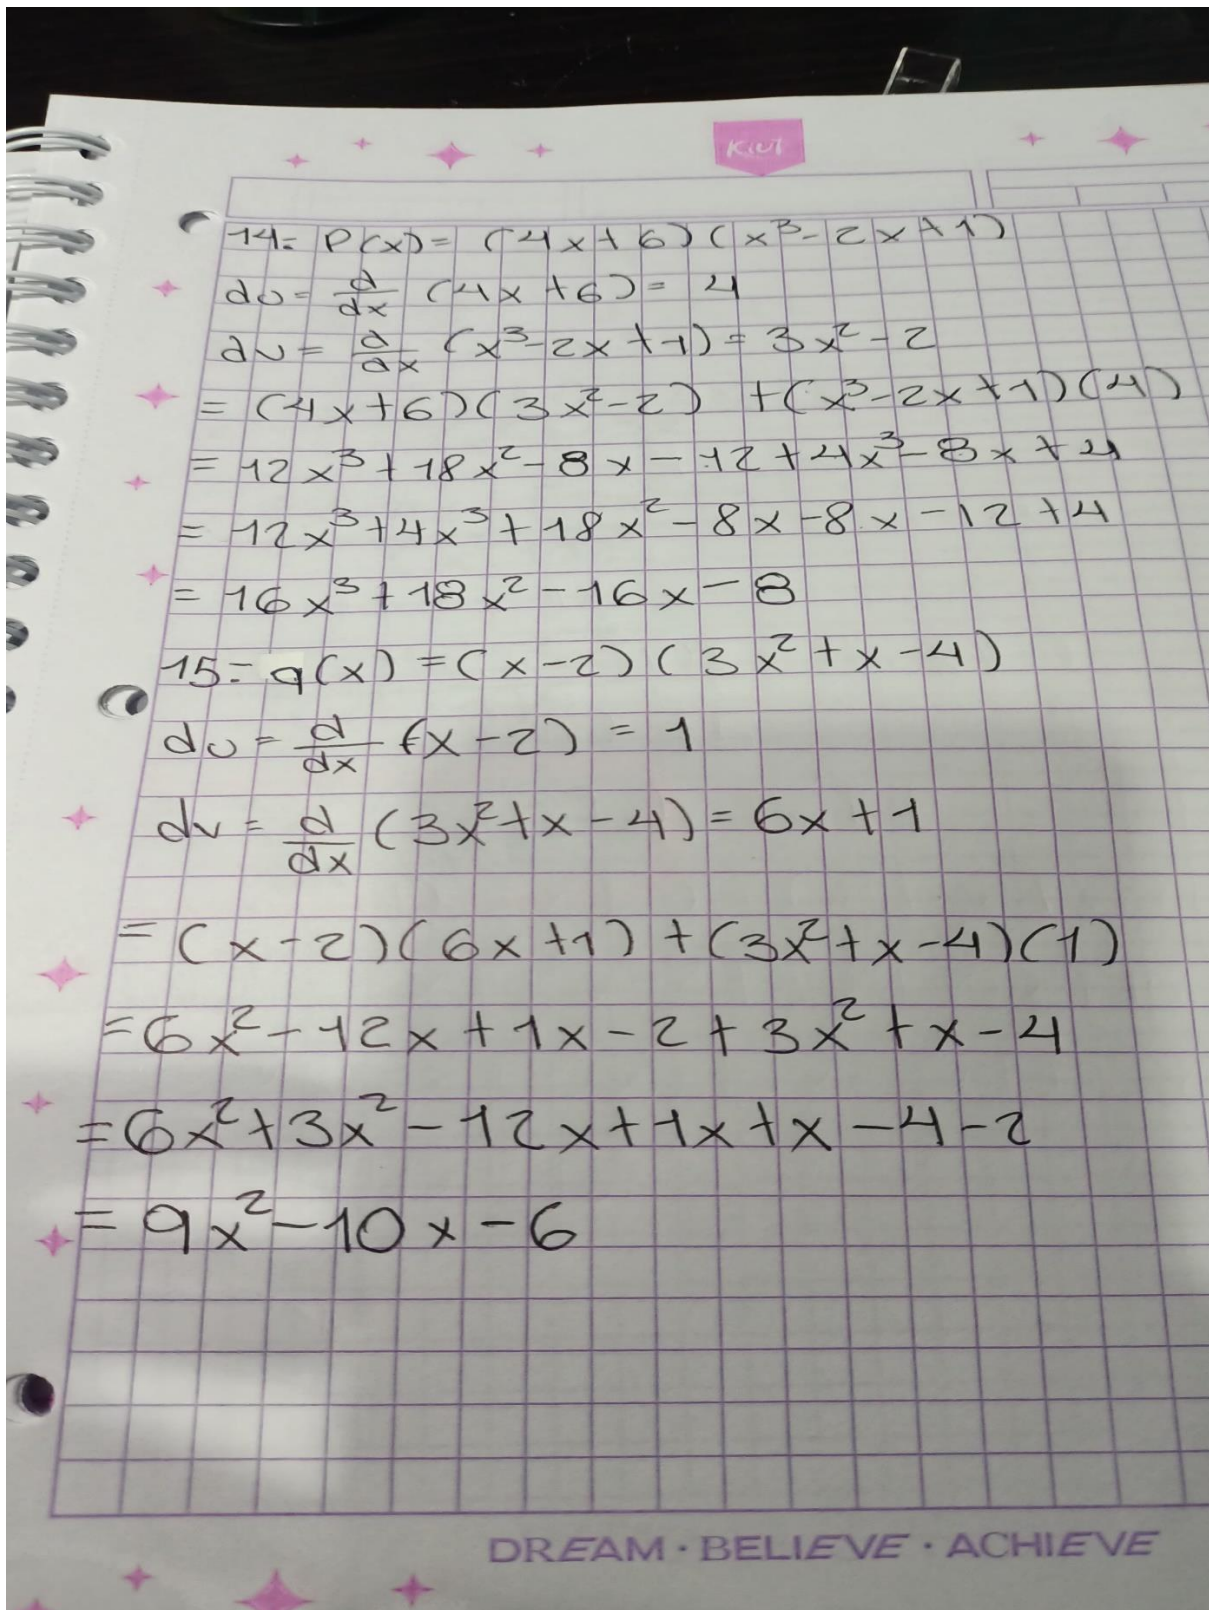 KIUT
14= P(x)= (4x+6)(x³-2x+1)
du= d/dx (4x+6)= 4
dv= d/dx (x³-2x+1)=3x²-2
=(4x+6)(3x²-2) +(x³-2x+1)(4)
=12x³+18x²-8x-12+4x³-8x+4
=12x³+4x³+18x²-8x-8x-12+4
=16x³+18x²-16x-8
15= q(x)=(x-2)(3x²+x-4)
du= d/dx (x-2)=1
dv= d/dx (3x²+x-4)=6x+1
=(x-2)(6x+1)+(3x²+x-4)(1)
=6x²-12x+1x-2+3x²+x-4
=6x²+3x²-12x+1x+x-4-2
=9x²-10x-6
DREAM · BELIEVE · ACHIEVE